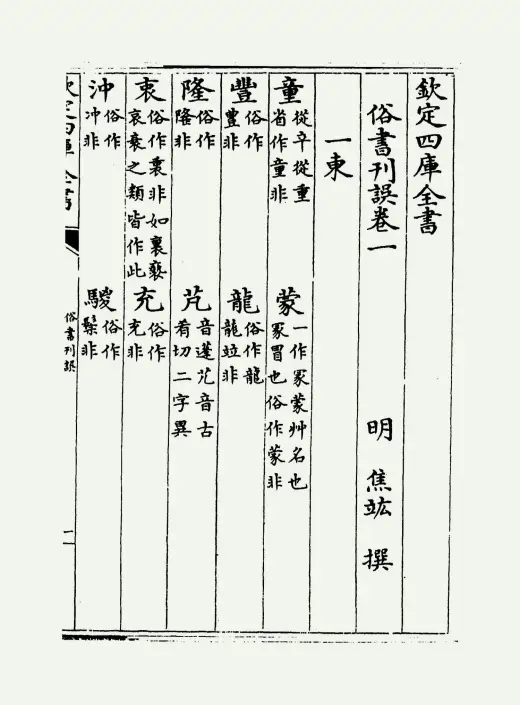 欽定四庫全書
俗書刊誤卷一
明 焦竑 撰
一東
童 從辛從重省作童非 蒙 一作冡蒙艸名也冡冒也俗作蒙非
豐 俗作豊非 龍 俗作龍龍竝非
隆 俗作隆非 芃 音蓬芁音古肴切二字異
衷 俗作衷非如裏褻哀衰之類皆作此 充 俗作充非
沖 俗作冲非 騣 俗作鬃非
欽定四庫全書
俗書刊誤
一